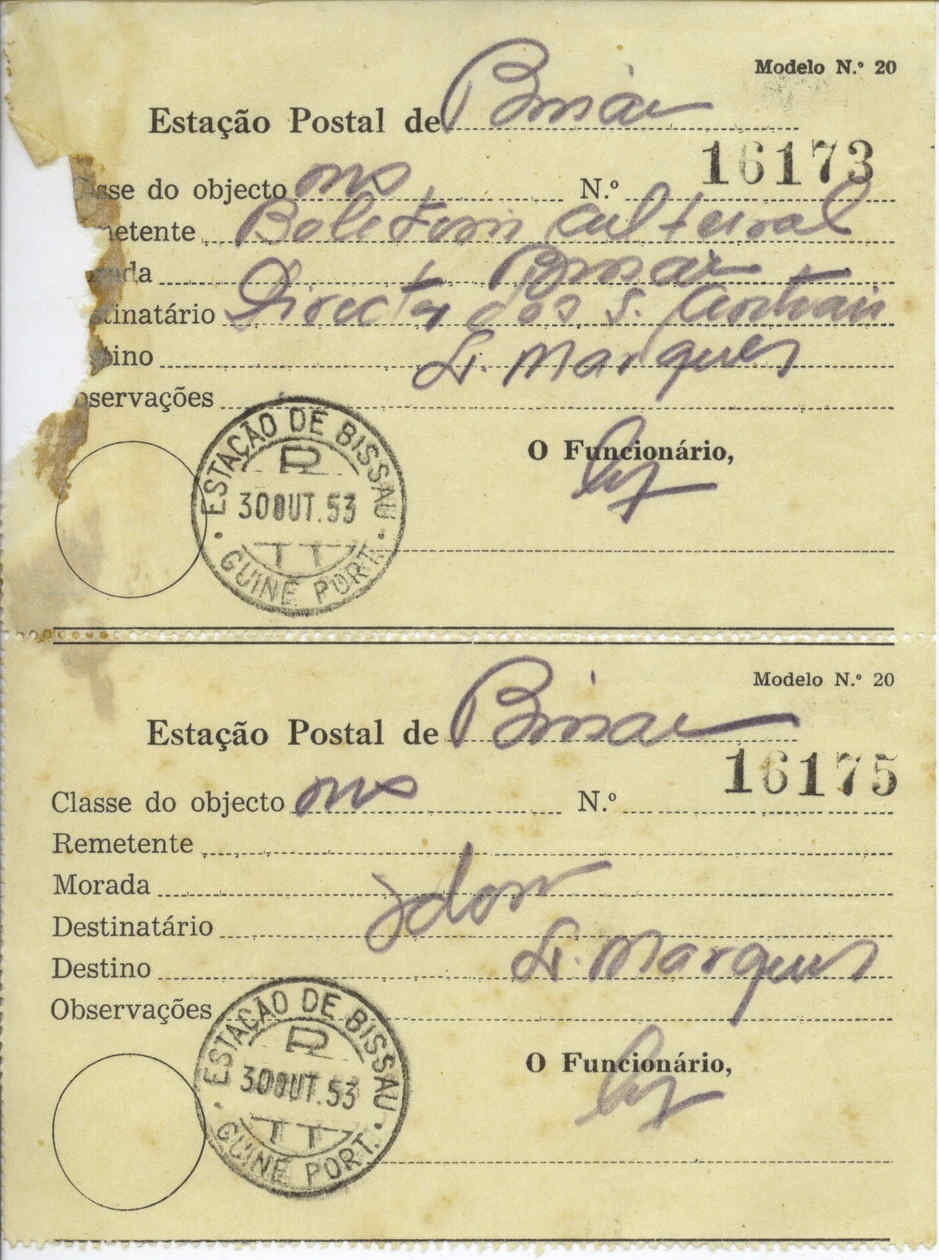 Modelo N.º 20
Estação Postal de Bissau
16173
sse do objecto ons N.º
etente Boletim cultural
da Bissau
tinatário Director dos S.
ino L. Marques
servações
O Funcionário,
ESTAÇÃO DE BISSAU
R
30 OUT. 53
TT
GUINÉ PORT.
Modelo N.º 20
Estação Postal de Bissau
16175
Classe do objecto ons N.º
Remetente
Morada
Destinatário Idem
Destino L. Marques
Observações
O Funcionário,
ESTAÇÃO DE BISSAU
R
30 OUT. 53
TT
GUINÉ PORT.